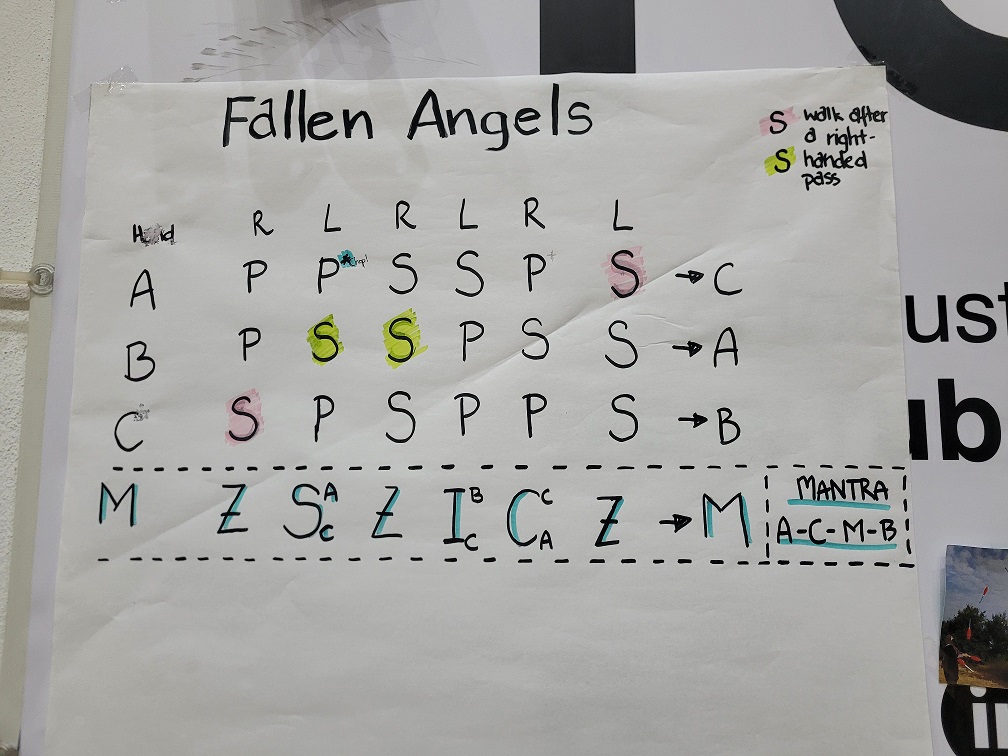 Fallen Angels
S walk after
a right-
S handed
pass
R L R L R L
A P P S S P+ S → C
B P S S P S S → A
C S P S P P S → B
M Z S A C Z I B C C C A Z → M
MANTRA
A-C-M-B
ust
ub